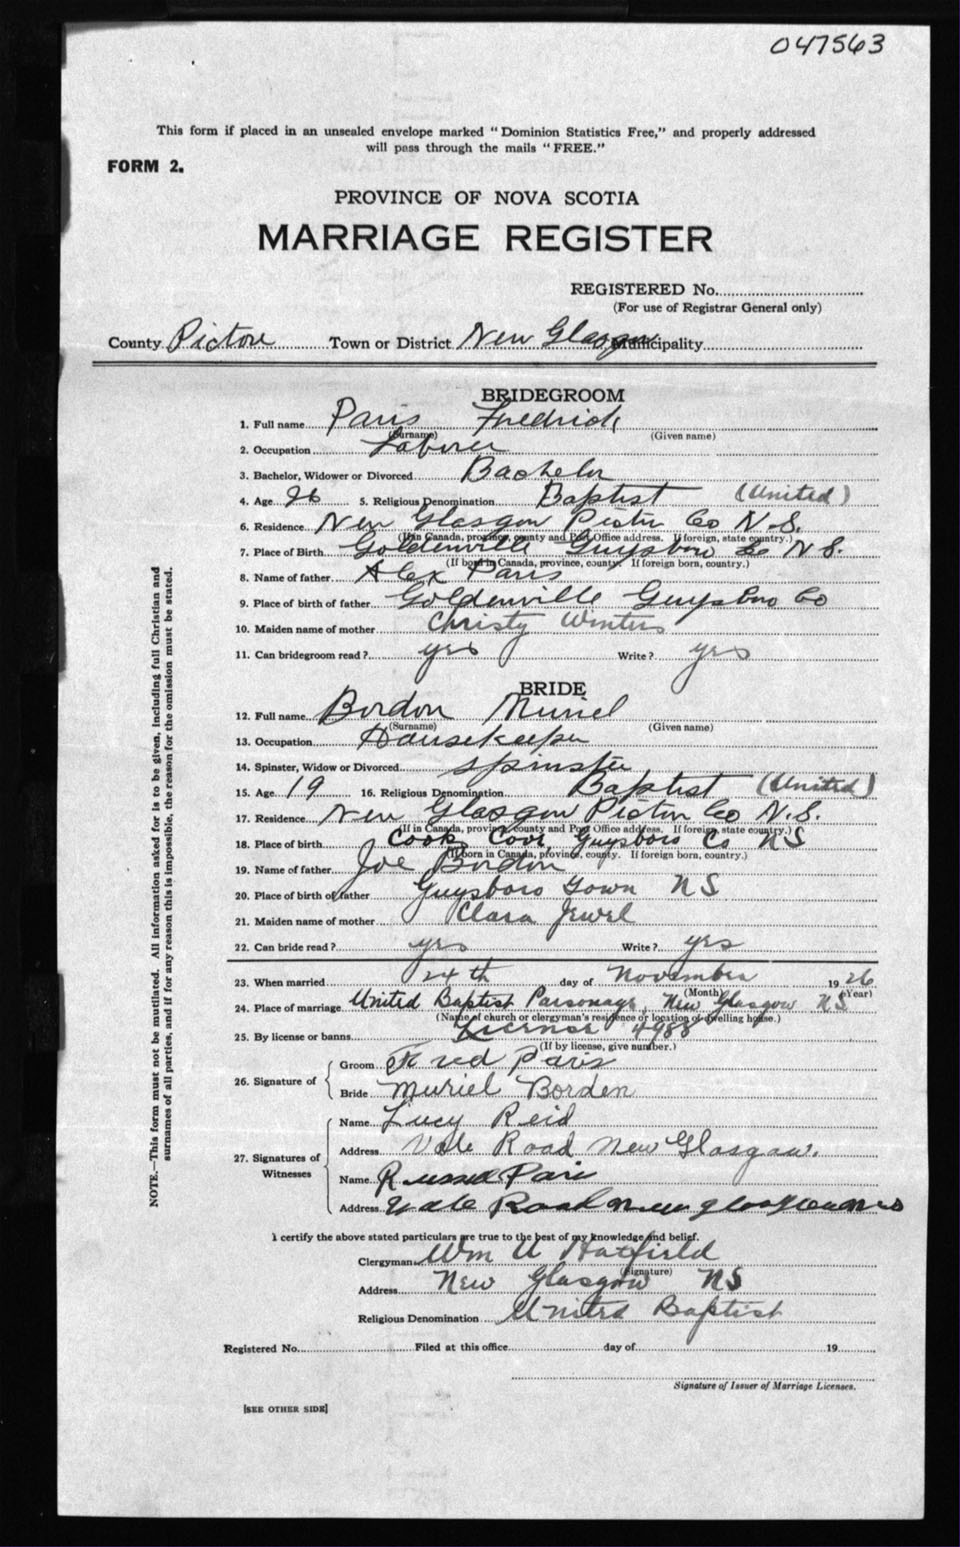 047563
This form if placed in an unsealed envelope marked "Dominion Statistics Free," and properly addressed
will pass through the mails "FREE."
FORM 2.
PROVINCE OF NOVA SCOTIA
MARRIAGE REGISTER
REGISTERED No.
(For use of Registrar General only)
County Pictou Town or District New Glasgow Municipality
BRIDEGROOM
1. Full name Paris Fredrick
(Surname) (Given name)
2. Occupation Laborer
3. Bachelor, Widower or Divorced Bachelor
4. Age 26 5. Religious Denomination Baptist (United)
6. Residence New Glasgow Pictou Co N.S.
(If in Canada, province, county and Post Office address. If foreign, state country.)
7. Place of Birth Goldenville Guysboro Co N.S.
(If born in Canada, province, county. If foreign born, country.)
8. Name of father Alex Paris
9. Place of birth of father Goldenville Guysboro Co
10. Maiden name of mother Christy Winters
11. Can bridegroom read? yes Write? yes
BRIDE
12. Full name Bordon Muriel
(Surname) (Given name)
13. Occupation Housekeeper
14. Spinster, Widow or Divorced Spinster
15. Age 19 16. Religious Denomination Baptist (United)
17. Residence New Glasgow Pictou Co N.S.
(If in Canada, province, county and Post Office address. If foreign, state country.)
18. Place of birth Cook Cove, Guysboro Co NS
(If born in Canada, province, county. If foreign born, country.)
19. Name of father Joe Bordon
20. Place of birth of father Guysboro Town NS
21. Maiden name of mother Clara Jewel
22. Can bride read? yes Write? yes
23. When married 24th day of November 1926
(Month) (Year)
24. Place of marriage United Baptist Parsonage, New Glasgow NS
(Name of church or clergyman's residence or location of dwelling house.)
25. By license or banns License 4988
(If by license, give number.)
26. Signature of
Groom Fred Paris
Bride Muriel Borden
27. Signatures of Witnesses
Name Lucy Reid
Address Vale Road New Glasgow.
Name Russel Paris
Address Vale Road New Glasgow NS
I certify the above stated particulars are true to the best of my knowledge and belief.
Clergyman Wm A Hatfield
(Signature)
Address New Glasgow NS
Religious Denomination United Baptist
Registered No. Filed at this office day of 19
Signature of Issuer of Marriage Licenses.
[SEE OTHER SIDE]
NOTE.—This form must not be mutilated. All information asked for is to be given, including full Christian and
surnames of all parties, and if for any reason this is impossible, the reason for the omission must be stated.